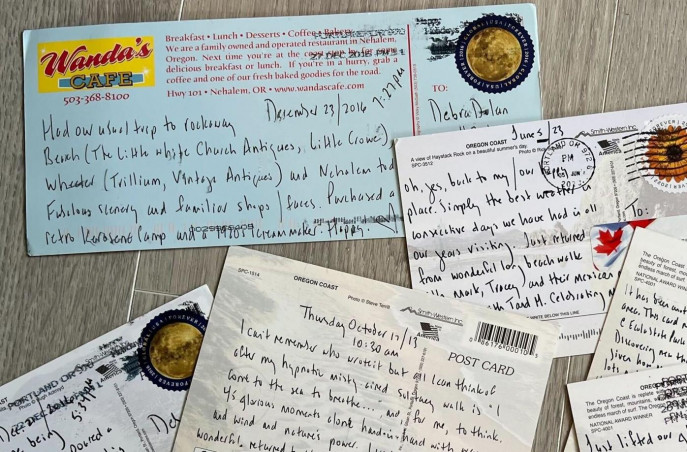 Wanda's
CAFE
503-368-8100
Breakfast • Lunch • Desserts • Coffee • Bakery
We are a family owned and operated restaurant in Nehalem,
Oregon. Next time you're at the coast stop by for some
delicious breakfast or lunch. If you're in a hurry, grab a
coffee and one of our fresh baked goodies for the road.
Hwy 101 • Nehalem, OR • www.wandascafe.com
Happy
Holidays
December 23/2016 7:27pm
TO:
Debra Dolan
Had our usual trip to rockaway
Beach (The Little White Church Antiques, Little Crowe),
Wheeler (Trillium, Vintage Antiques) and Nehalem too
Fabulous scenery and familiar shops / faces. Purchased a
retro Kerosene lamp and a 1920s icecream maker. Happy.
OREGON COAST
A view of Haystack Rock on a beautiful summer's day.
SPC-3512
June 5/23
Smith-Western Inc.
America
PORTLAND OR 972
PM
FOREVER
To:
Oh, yes, back to my / our happy
place. Simply the best weather in
consecutive days we have had in all
our years visiting. Just returned
from wonderful long beach walk
Mark, Tracey) and their mexican
and M. Celebrating
BELOW THIS LINE
SPC-1514
OREGON COAST
Photo © Steve Terrill
Smith-Western Inc.
America
POST CARD
Thursday October 17/13
10:30 am
I can't remember who wrote it but all I can think of
after my hypnotic misty-eyed solitary walk is "I
come to the sea to breathe... and for me, to think.
4½ glorious moments alone hand-in-hand with
and wind and nature's power.
wonderful
PORTLAND OR 970
FOREVER
America
being
poured a
The Oregon Coast
beauty of forest,
endless march of surf.
SPC-4001
NATIONAL AWARD
It has been
area. This card
Discovering new
given
lots
OREGON
The Oregon Coast is replete
beauty of forest, mountains,
endless march of surf. The Oregon
NATIONAL AWARD WINNER
SPC-4001
Just lifted our